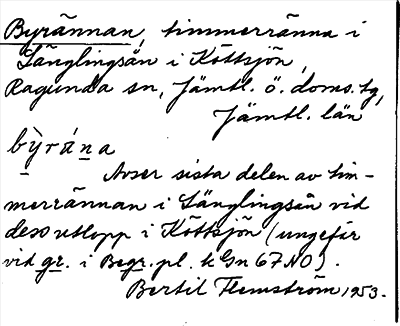 Byrännan, timmerränna i
Länglingsån i Köttsjön,
Ragunda sn, Jämtl. ö. doms. tg,
Jämtl. län
bỳrána
Avser sista delen av tim-
merrännan i Länglingsån vid
dess utlopp i Köttsjön (ungefär
vid gr. i Begr. pl. k Gn 67 NO).
Bertil Flemström 1953.